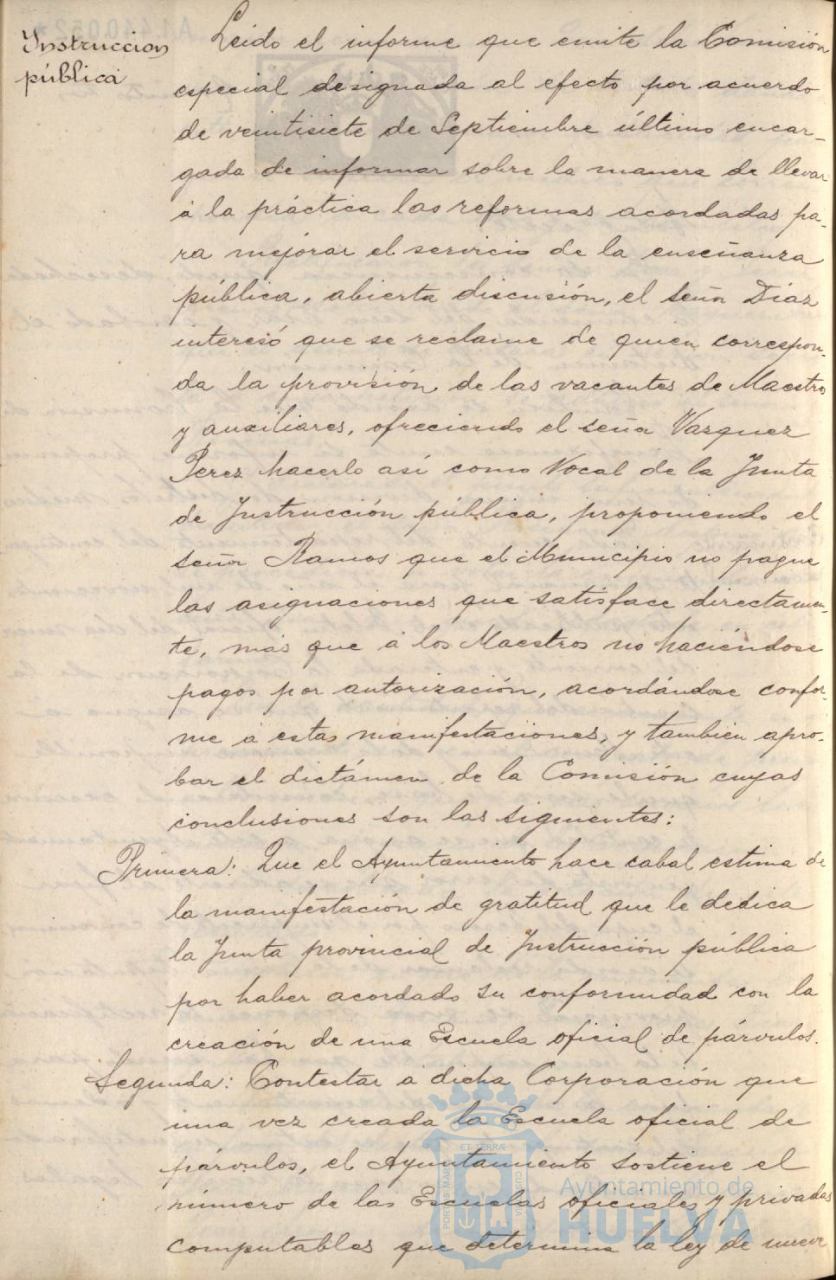 Instruccion
pública
Leido el informe que emite la Comisión
especial designada al efecto por acuerdo
de veintisiete de Septiembre último encar-
gada de informar sobre la manera de llevar
á la práctica las reformas acordadas pa-
ra mejorar el servicio de la enseñanza
pública, abierta discusión, el señor Díaz
interesó que se reclame de quien correspon-
da la provisión de las vacantes de Maestro
y auxiliares, ofreciendo el señor Vazquez
Perez hacerlo así como Vocal de la Junta
de Instrucción pública, proponiendo el
señor Ramos que el Municipio no pague
las asignaciones que satisface directamen-
te, más que á los Maestros no haciéndose
pagos por autorización, acordándose confor-
me á estas manifestaciones, y tambien apro-
bar el dictámen de la Comisión cuyas
conclusiones son las siguientes:
Primera: Que el Ayuntamiento hace cabal estima de
la manifestación de gratitud que le dedica
la Junta provincial de Instrucción pública
por haber acordado su conformidad con la
creación de una Escuela oficial de párvulos.
Segunda: Contestar á dicha Corporación que
una vez creada la Escuela oficial de
párvulos, el Ayuntamiento sostiene el
número de las Escuelas oficiales y privadas
computables que determina la ley de nueve
Ayuntamiento de
HUELVA